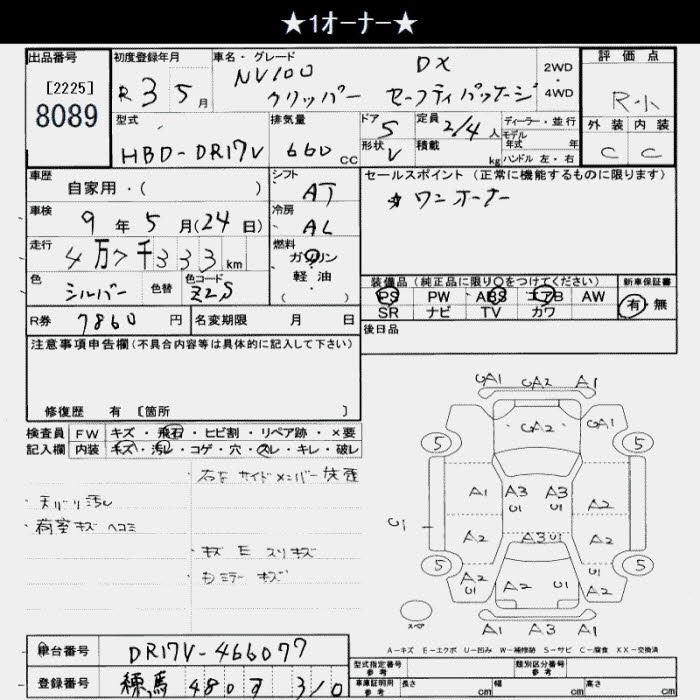 ★1オーナー★
出品番号
[2225]
8089
初度登録年月
R 3 5 月
車名・グレード
NV100 DX
クリッパー セーフティパッケージ
2WD
・
4WD
評価点
R小
外装 内装
C C
型式
HBD-DR17V
排気量
660 CC
ドア 5
形状 V
定員 2/4 人
積載 kg
ディーラー・並行
モデル
年式 年
ハンドル 左・右
車歴
自家用・( )
シフト AT
車検
9 年 5 月(24日)
冷房 AC
走行
4万7千333 km
燃料
ガソリン
・
軽油
( )
色 シルバー 色替 色コード Z2S
R券 7860 円 名変期限 月 日
セールスポイント (正常に機能するものに限ります)
☆ワンオーナー
装備品 (純正品に限り○をつけてください)
PS PW ABS エアB AW
SR ナビ TV カワ
新車保証書
有 無
後日品
注意事項申告欄(不具合内容等は具体的に記入して下さい)
修復歴 有 [箇所 ]
検査員 FW キズ・飛石・ヒビ割・リペア跡・×要
記入欄 内装 キズ・汚レ・コゲ・穴・スレ・キレ・破レ
天バリ汚レ
荷室キズ ヘコミ
キズ E スリキズ
ミラーキズ
UA1 UA2 A1
UA2
5 5
A1 A3 A3
U1 U1 A2
U1
A2 A3 U1 A2
5 5
A2 U1 A2 U1 U1 A2
スペア
A1 A3 A1
A-キズ E-エクボ U-凹み W-補修跡 S-サビ C-腐食 XX-交換済
車台番号 DR17V-466077
登録番号 練馬 480 す 310
型式指定番号
参考
類別区分番号
参考
車庫証明用
参考
長さ cm 幅 cm 高さ cm